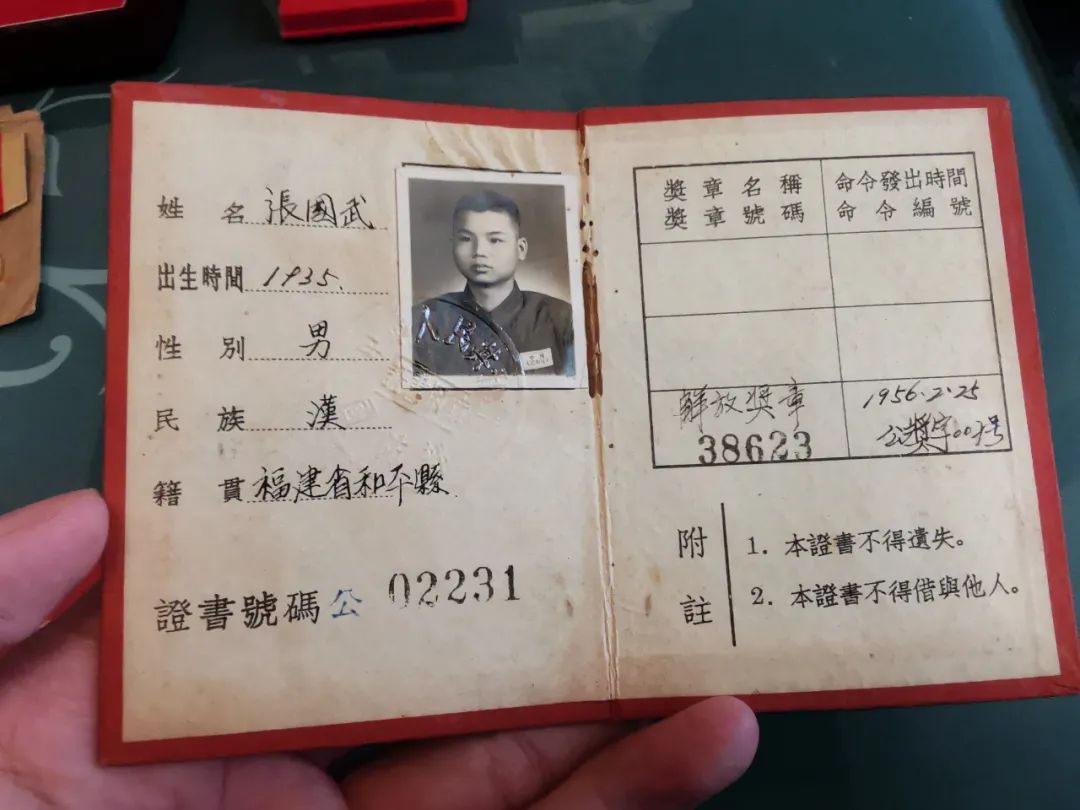 姓 名 張國武
出生時間 1935.
性 別 男
民 族 漢
籍 貫 福建省和平縣
證書號碼 公 02231
人民
獎章名稱 命令發出時間
獎章號碼 命令編號
解放奬章 1956.2.25
38623 公奬字 号
附註
1. 本證書不得遺失。
2. 本證書不得借與他人。